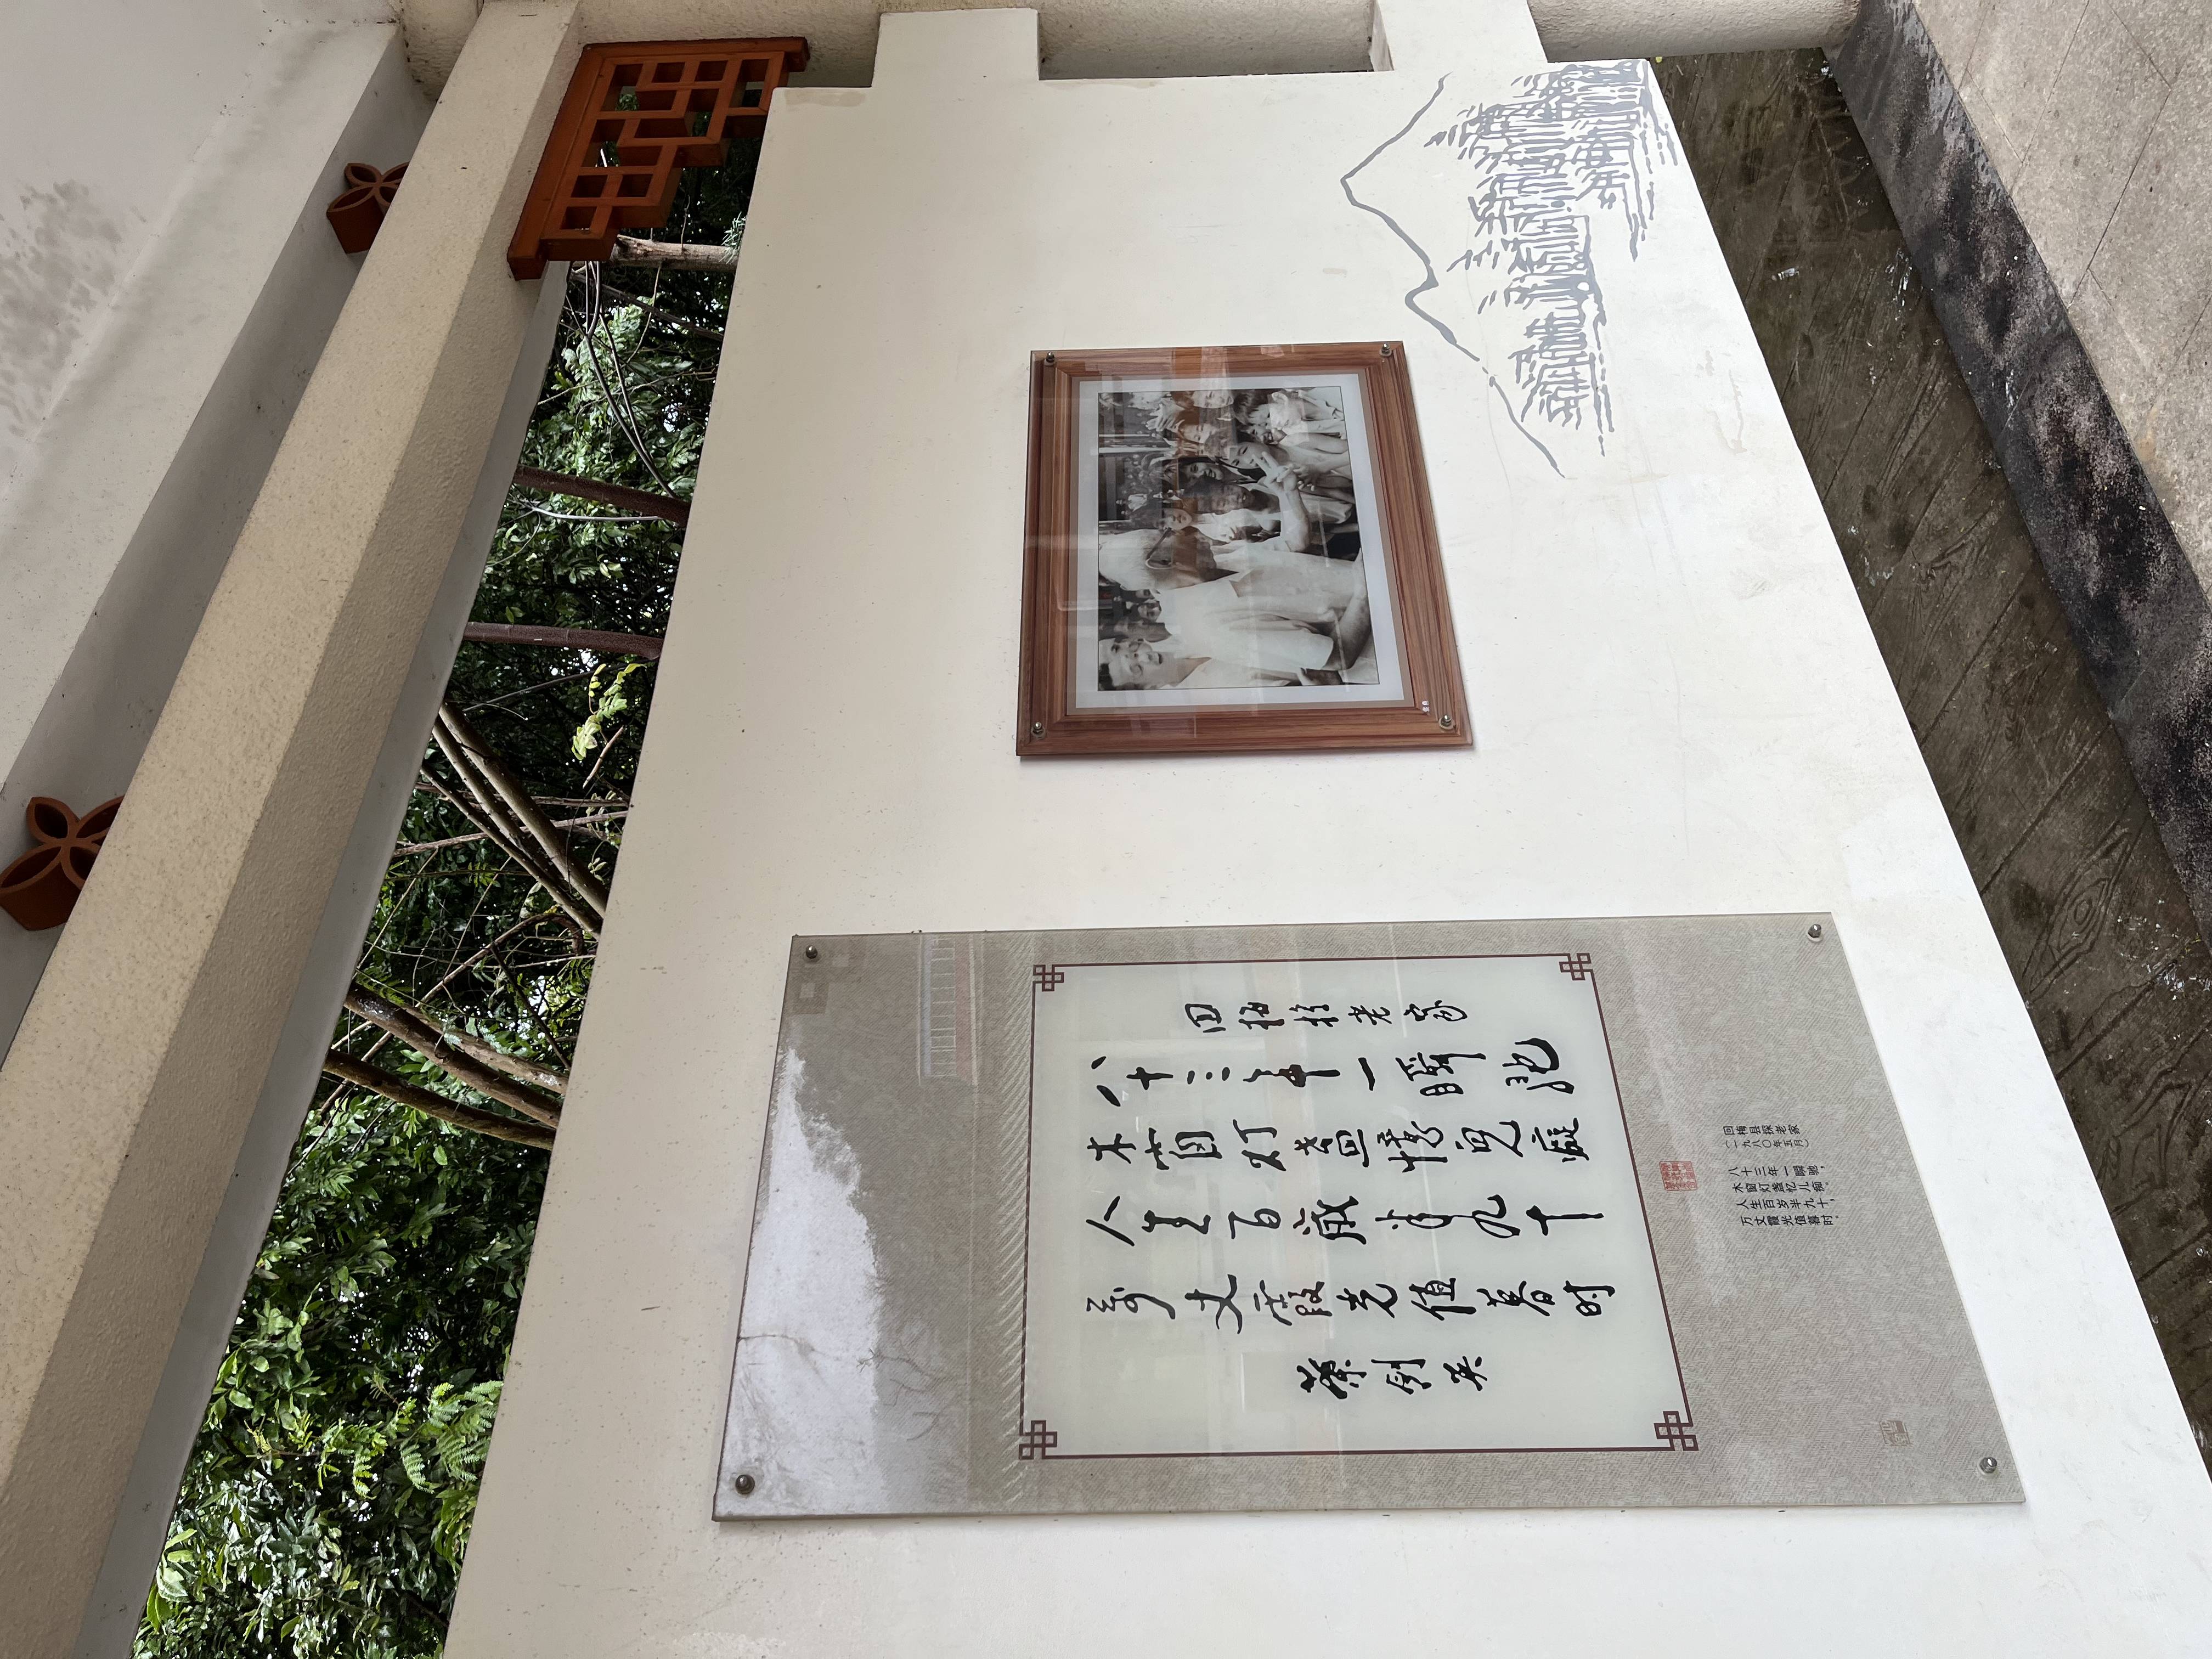 回梅探老家
八十三年一瞬驰
木窗灯盏憶児癡
人生百歲半九十
萬丈霞光值暮时
葉剑英
回梅县探老家
（一九八〇年五月）
八十三年一瞬驰，
木窗灯盏忆儿痴。
人生百岁半九十，
万丈霞光值暮时。